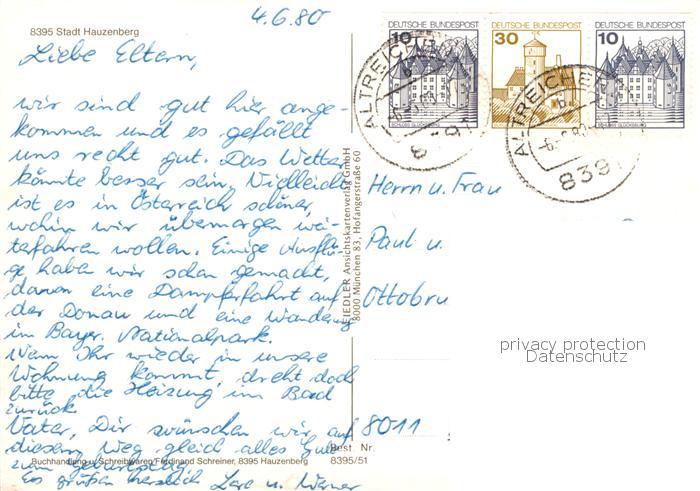 8395 Stadt Hauzenberg
4.6.80
Liebe Eltern,
wir sind gut hier ange-
kommen und es gefällt
uns recht gut. Das Wetter
könnte besser sein. Vielleicht
ist es in Österreich schöner,
wohin wir übermorgen wei-
terfahren wollen. Einige Ausflü-
ge haben wir schon gemacht,
davon eine Dampferfahrt auf
der Donau und eine Wanderung
im Bayer. Nationalpark.
Wenn Ihr wieder in unsere
Wohnung kommt, dreht doch
bitte die Heizung im Bad
zurück.
Vater, Dir wünschen wir auf
diesem Weg gleich alles Gute
zum Geburtstag.
Es grüßen herzlich Lore u. Werner
Buchhandlung u. Schreibwaren Ferdinand Schreiner, 8395 Hauzenberg
FIEDLER Ansichtskartenverlag GmbH
8000 München 83, Hofangerstraße 60
Best. Nr.
8395/51
DEUTSCHE BUNDESPOST
10
SCHLOSS GLÜCKSBURG
DEUTSCHE BUNDESPOST
30
DEUTSCHE BUNDESPOST
10
SCHLOSS GLÜCKSBURG
ALTREICHE
8391
ALTREICHE
8391
Herrn u. Frau
Paul u.
Ottobru
8011
privacy protection
Datenschutz